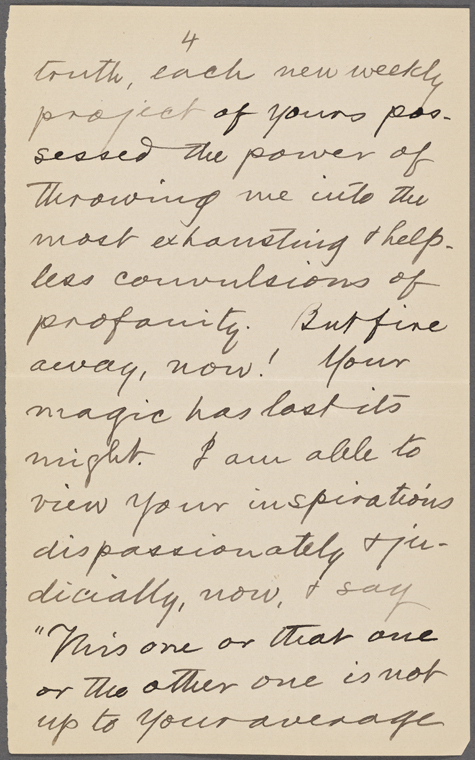 4
truth, each new weekly
project of yours pos-
sessed the power of
throwing me into the
most exhausting & help-
less convulsions of
profanity. But fire
away, now! Your
magic has lost its
might. I am able to
view your inspirations
dispassionately & ju-
dicially, now, & say
"This one or that one
or the other one is not
up to your average